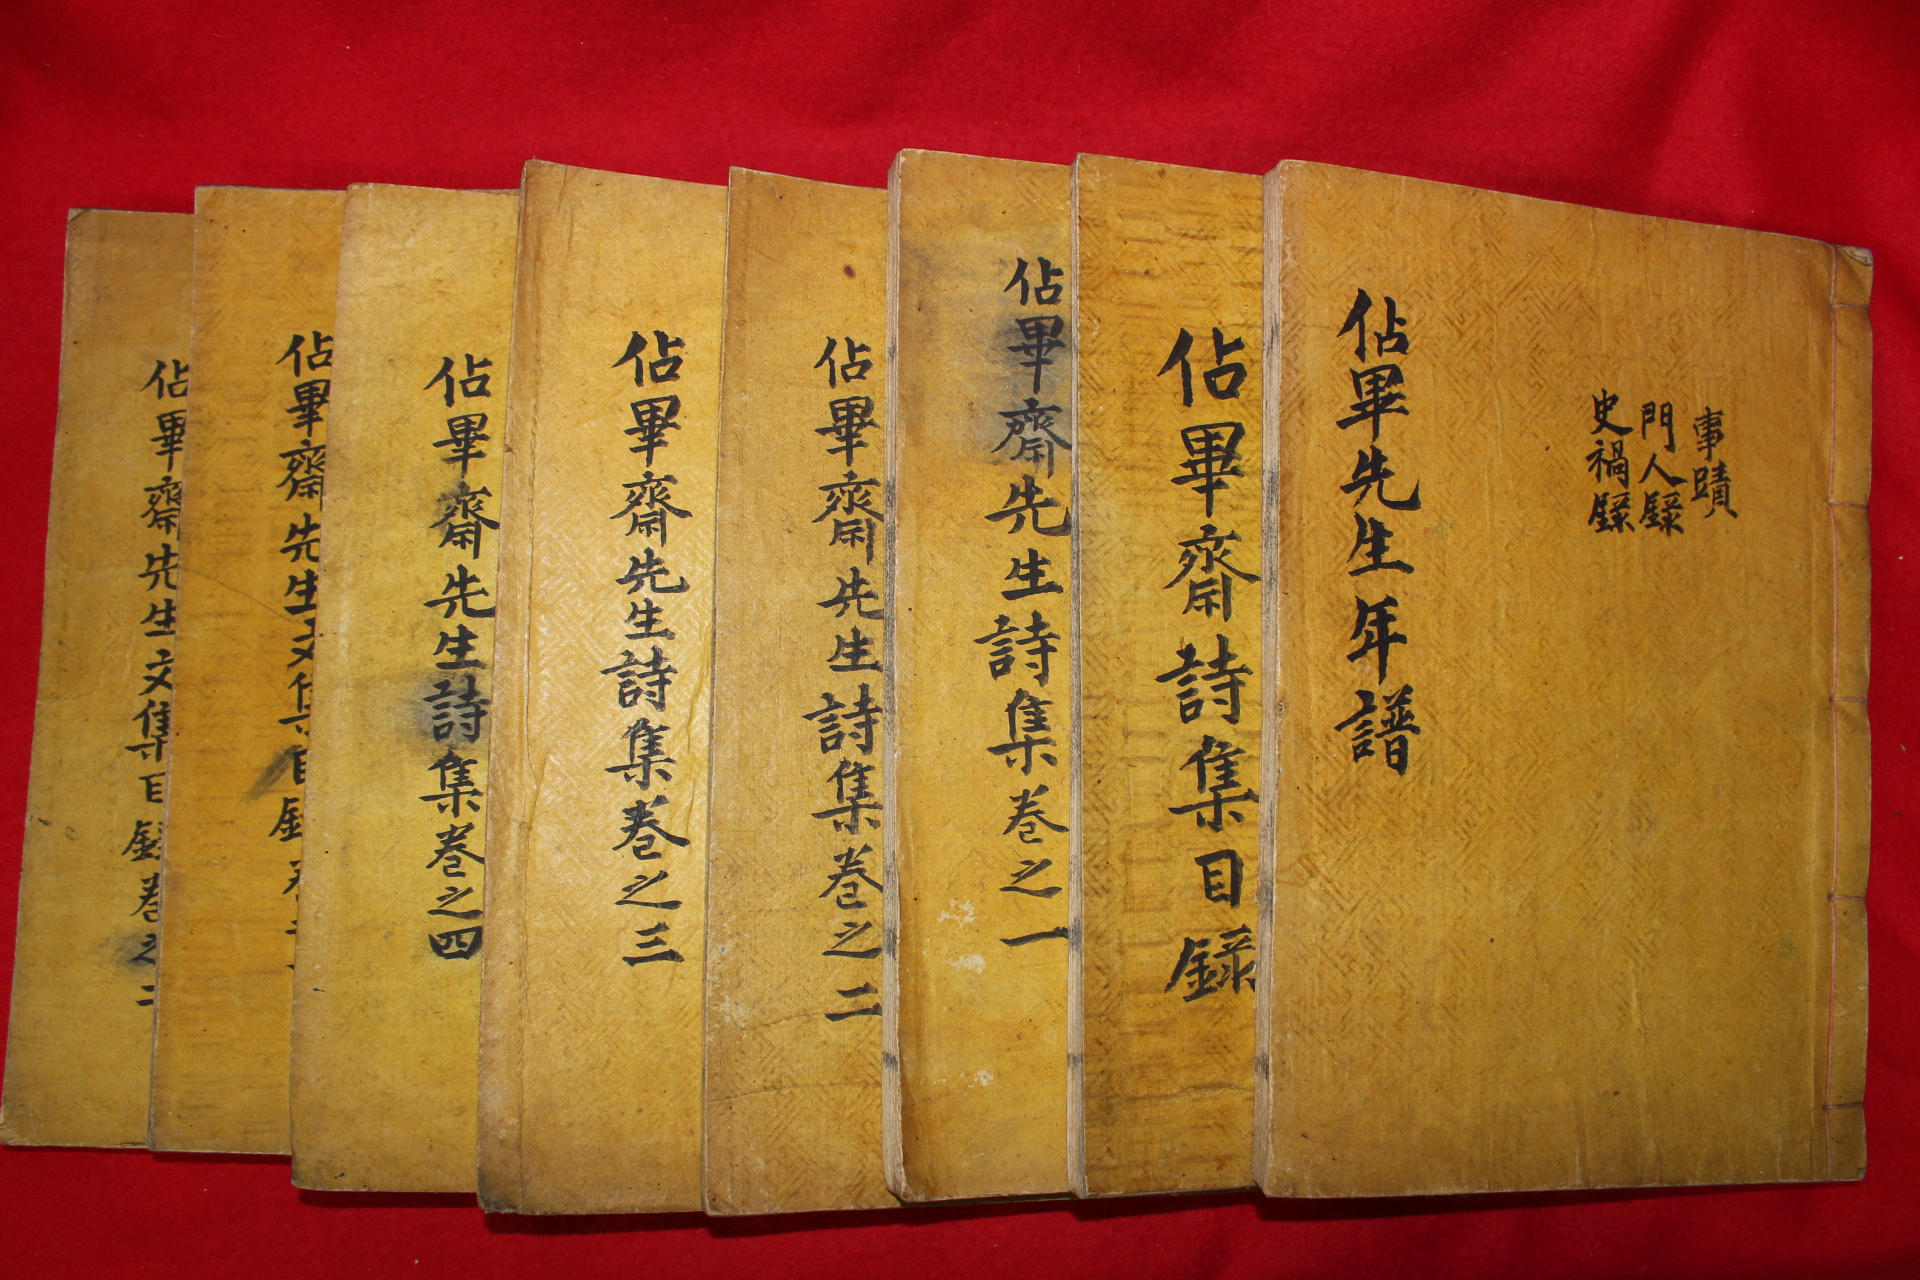 事蹟
門人錄
史禍錄
佔畢先生年譜
佔畢齋詩集目錄
佔畢齋先生詩集卷之一
佔畢齋先生詩集卷之二
佔畢齋先生詩集卷之三
佔畢齋先生詩集卷之四
佔畢齋先生文集目錄卷
佔畢齋先生文集目錄卷之二